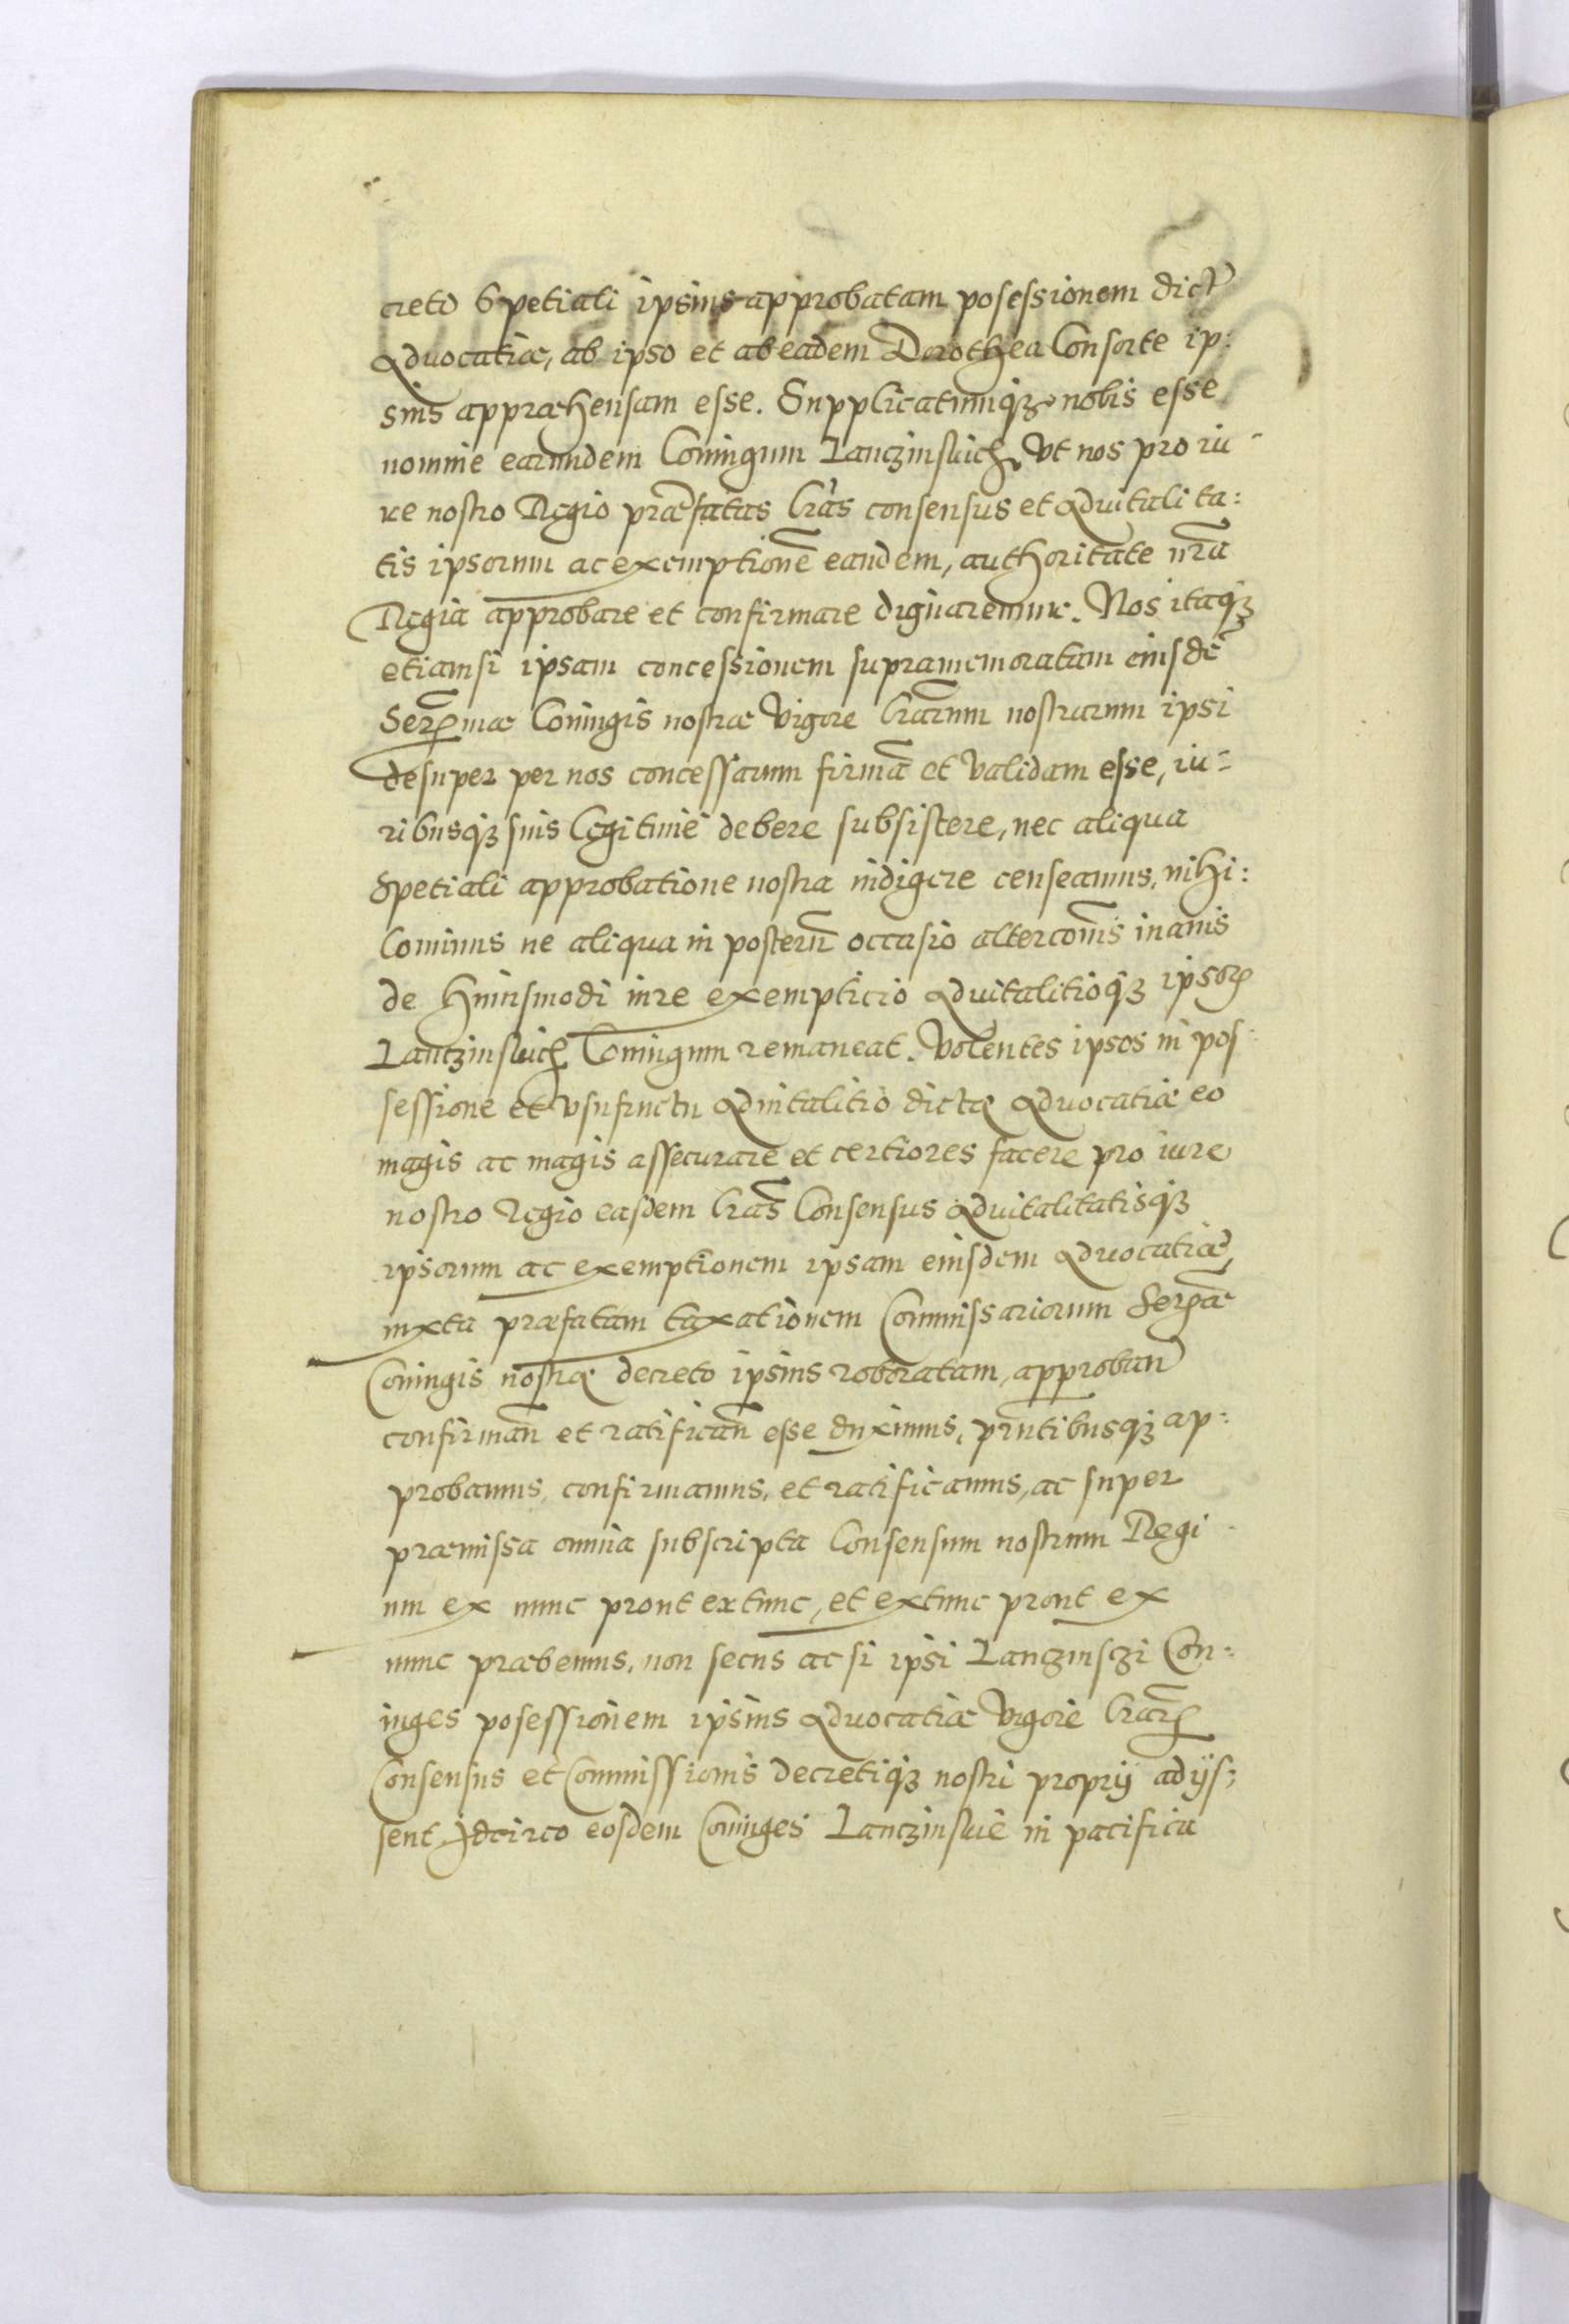 creto Spetiali ipsius approbatam posessionem dict͂
Advocatiæ, ab ipso et ab eadem Dorothea Consorte ip:
sius appræhensam esse. Supplicatumq̃ꝫ nobis esse
nomine earundem Coniugum Lanczinskich, Vt nos pro iu-
re nostro Regio præfatas l̃ras consensus et Advitalita:
tis ipsorum ac exemptionē eandem, authoritate nr̃a
Regia approbare et confirmare dignaremur. Nos itaq̃ꝫ
etiamsi ipsam concessionem supramemoratam eiusdē
Serꝫmæ Coniugis nostræ Vigore l̃rarum nostrarum ipsi
desuper per nos concessarum firmā et validam esse, iu-
ribusq̃ꝫ suis legitimè debere subsistere, nec aliqua
Spetiali approbatione nostra indigere censeamus, nihi:
lominus ne aliqua in posterū occasio altercōnis inanis
de huiusmodi iure exempticio Advitalitioq̃ꝫ ipsoꝝ
Lanczinskich Coniugum remaneat. Volentes ipsos in pos-
sessione et vsufructu Advitalitio dictæ Advocatiæ eo
magis ac magis assecurare et certiores facere pro iure
nostro Regio easdem l̃ras Consensus Advitalitatisq̃ꝫ
ipsorum ac exemptionem ipsam eiusdem Advocatiæ,
iuxta præfatam taxationem Commissariorum Serꝫmæ
Coniugis nostræ decreto ipsius roboratam, approban͂
confirman͂ et ratifican͂ esse duximus, prn̄tibusq̃ꝫ ap:
probamus, confirmamus, et ratificamus, ac super
præmissa omnia subscripta Consensum nostrum Regi-
um ex nunc prout ex tunc, et ex tunc prout ex
nunc præbemus, non secus ac si ipsi Lanczinsczi Con:
iuges posessionem ipsius Advocatiæ Vigore l̃raꝝ
Consensus et Commissionis decretiq̃ꝫ nostri proprij adijs:
sent Idcirco eosdem Coniuges Lanczinskie in pacifica